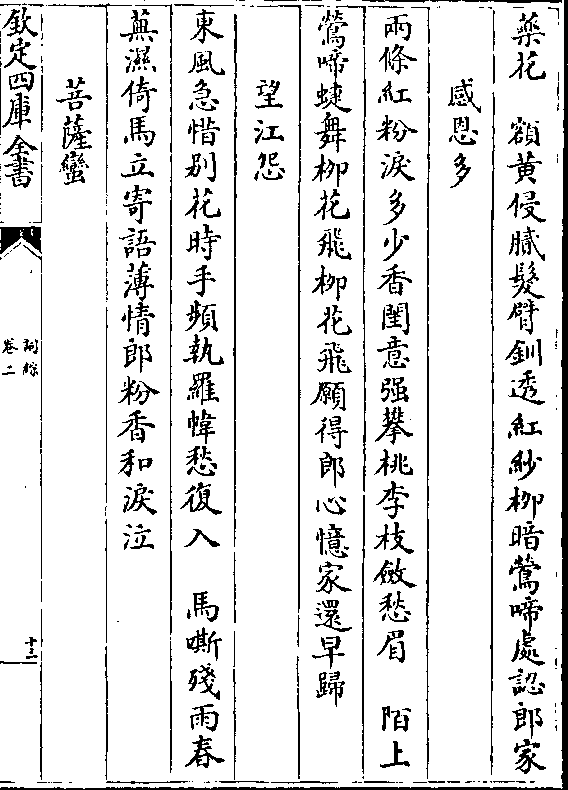 藥花　額黃侵膩髮臂釧透紅紗柳暗鶯啼處認郎家
感恩多
兩條紅粉淚多少香閨意强攀桃李枝斂愁眉　陌上
鶯啼蜨舞柳花飛柳花飛願得郎心憶家還早歸
望江怨
東風急惜别花時手頻執羅幃愁復入　馬嘶殘雨春
蕪濕倚馬立寄語薄情郎粉香和淚泣
菩薩蠻
欽定四庫全書
詞綜
卷二
十三